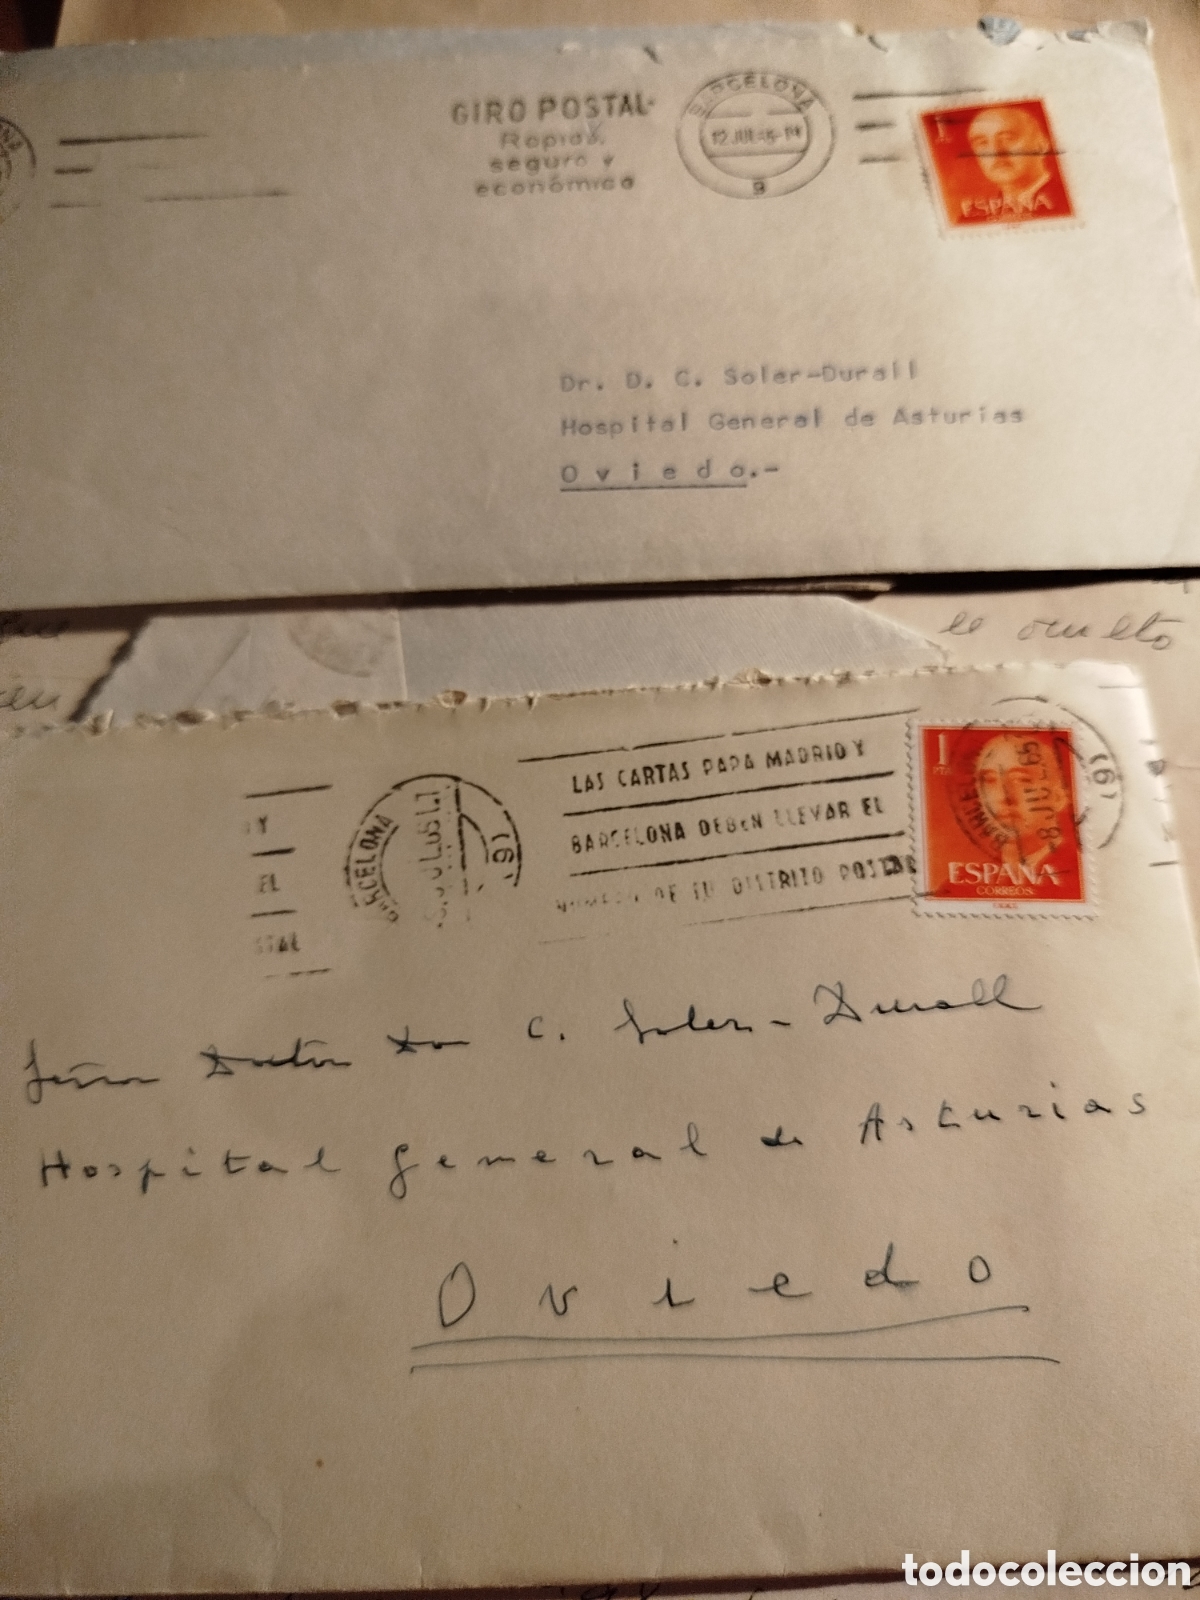 GIRO POSTAL
Rapido,
seguro y
económico
BARCELONA
12 JUL
9
1
ESPAÑA
Dr. D. C. Soler-Durall
Hospital General de Asturias
Oviedo.-
LAS CARTAS PARA MADRID Y
BARCELONA DEBEN LLEVAR EL
NUMERO DE SU DISTRITO POSTAL
Y
EL
STAL
BARCELONA
(9)
(9)
8 JUL 65
1
PTA
ESPAÑA
CORREOS
Señor Doctor Don C. Soler-Durall
Hospital General de Asturias
Oviedo
todocoleccion